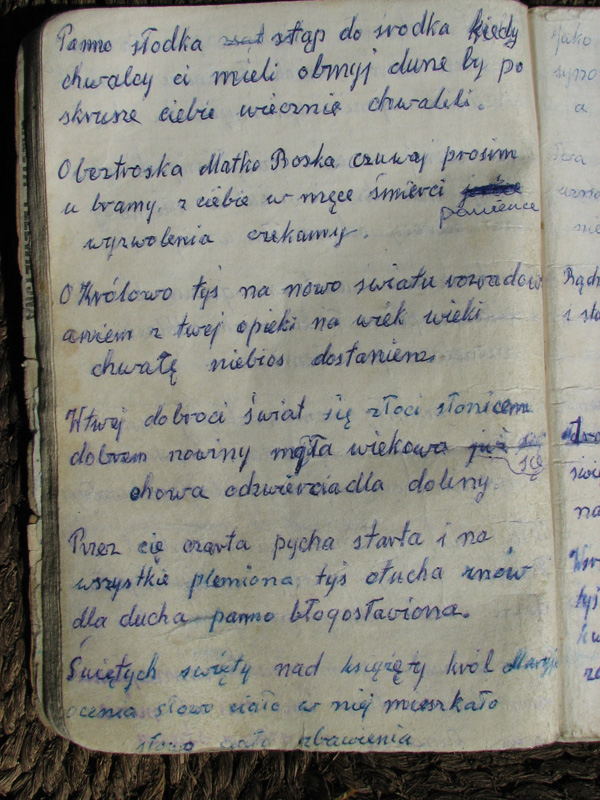 Panno słodka stąp do środka kiedy
chwalcy ci mieli obmyj dune by po
skrusze ciebie wiecznie chwaleli.
O beztroska Matko Boska czuwaj prosim
u bramy, z ciebie w męce śmierci
panience
wyzwolenia czekamy.
O Królowo tyś na nowo światu
aniem z twej opieki na wiek wieki
chwałę niebios dostaniem.
W twej dobroci świat się złoci słonicem
dobrem nowiny mgła wiekowa już
się
chowa odzwierciadla doliny
Przez cię czarta pycha starta i na
wszystkie plemiona, tyś otucha znów
dla ducha panno błogosławiona.
Świętych święty nad książęty król Maryję
ocenia słowo ciało w niej mieszkało
słowo ciało zbawienia